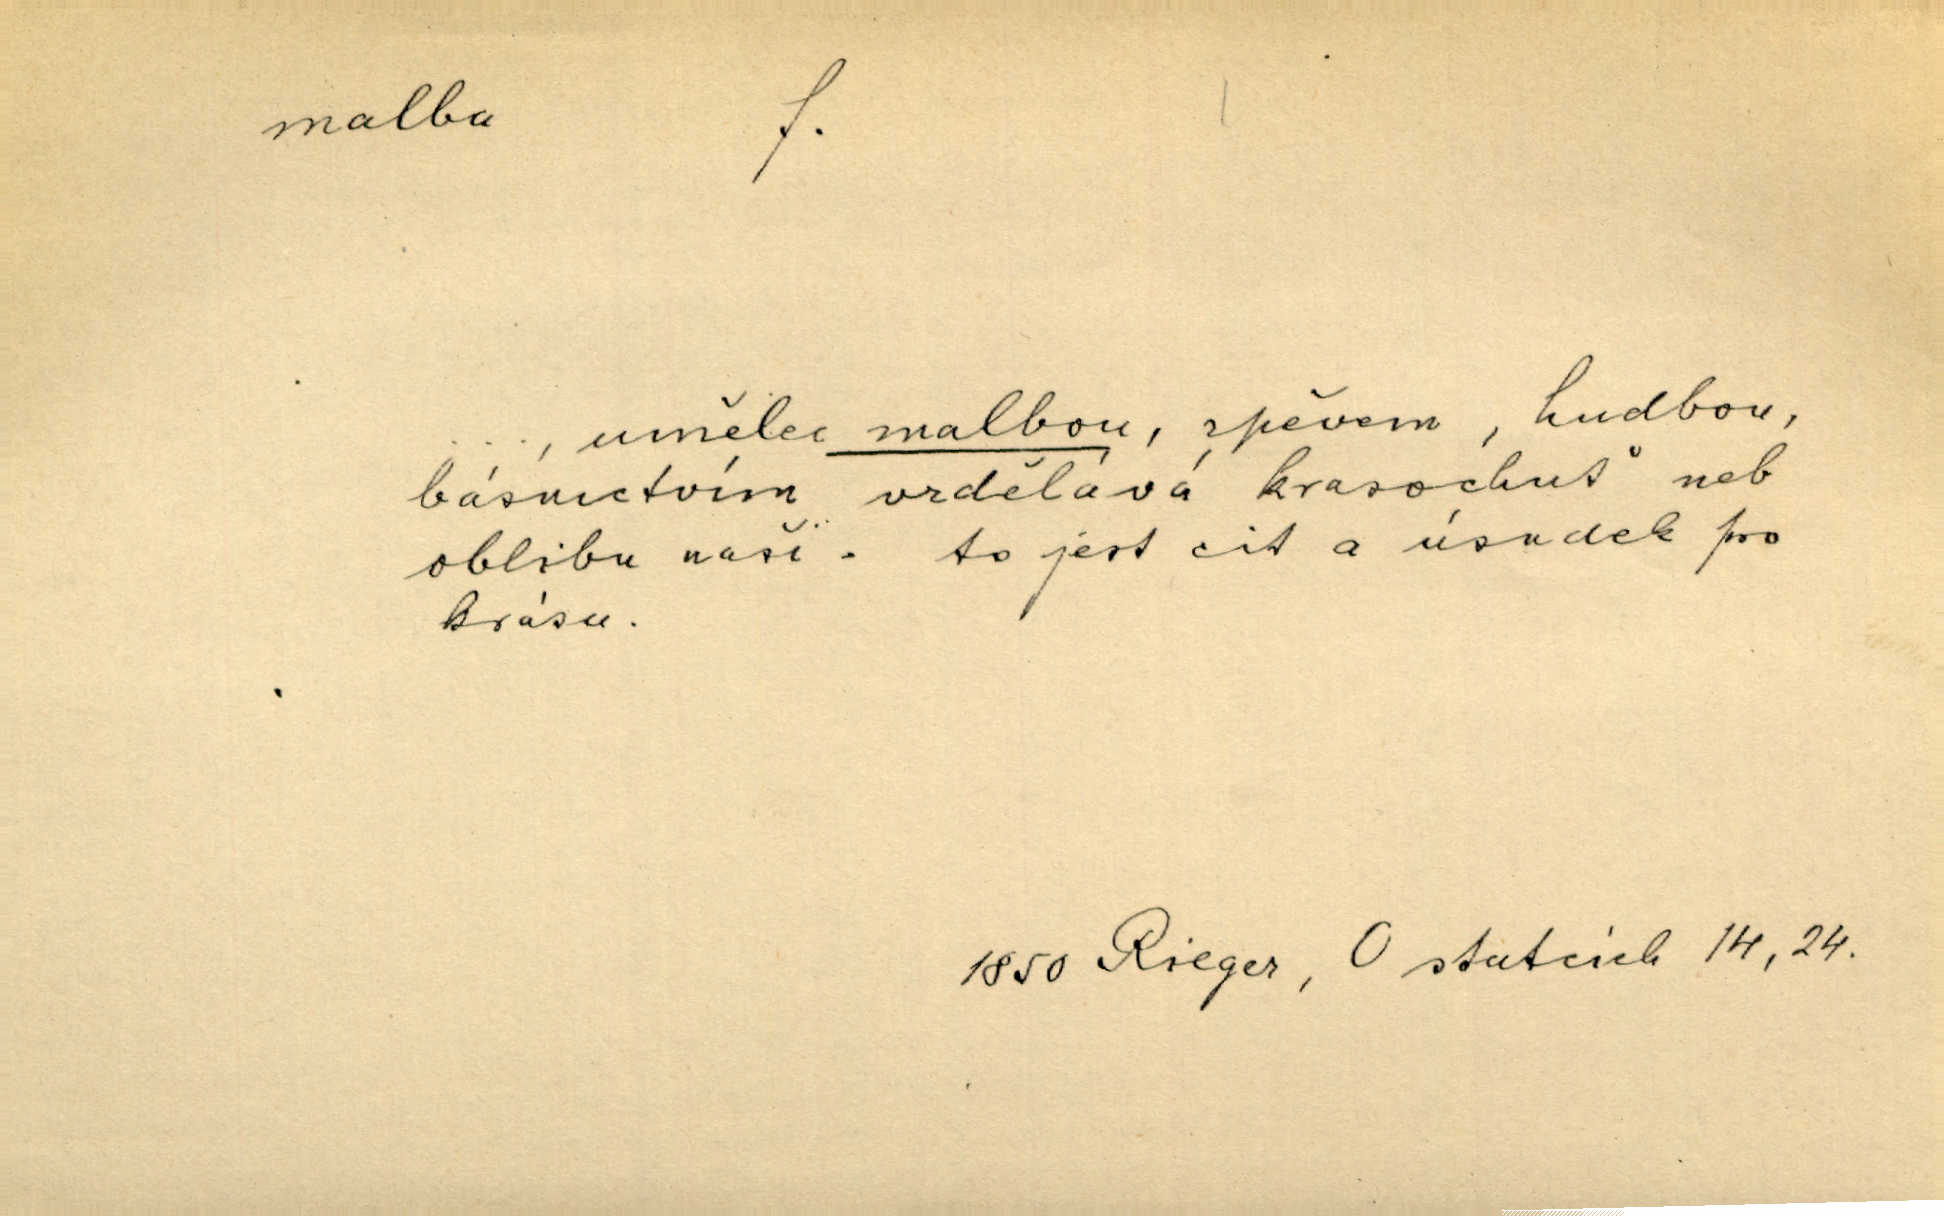 malba f.
..., umělec malbou, zpěvem, hudbou,
básnictvím vzdělává krasochuť neb
oblibu naši - to jest cit a úsudek pro
krásu.
1850 Rieger, O statcích 14, 24.